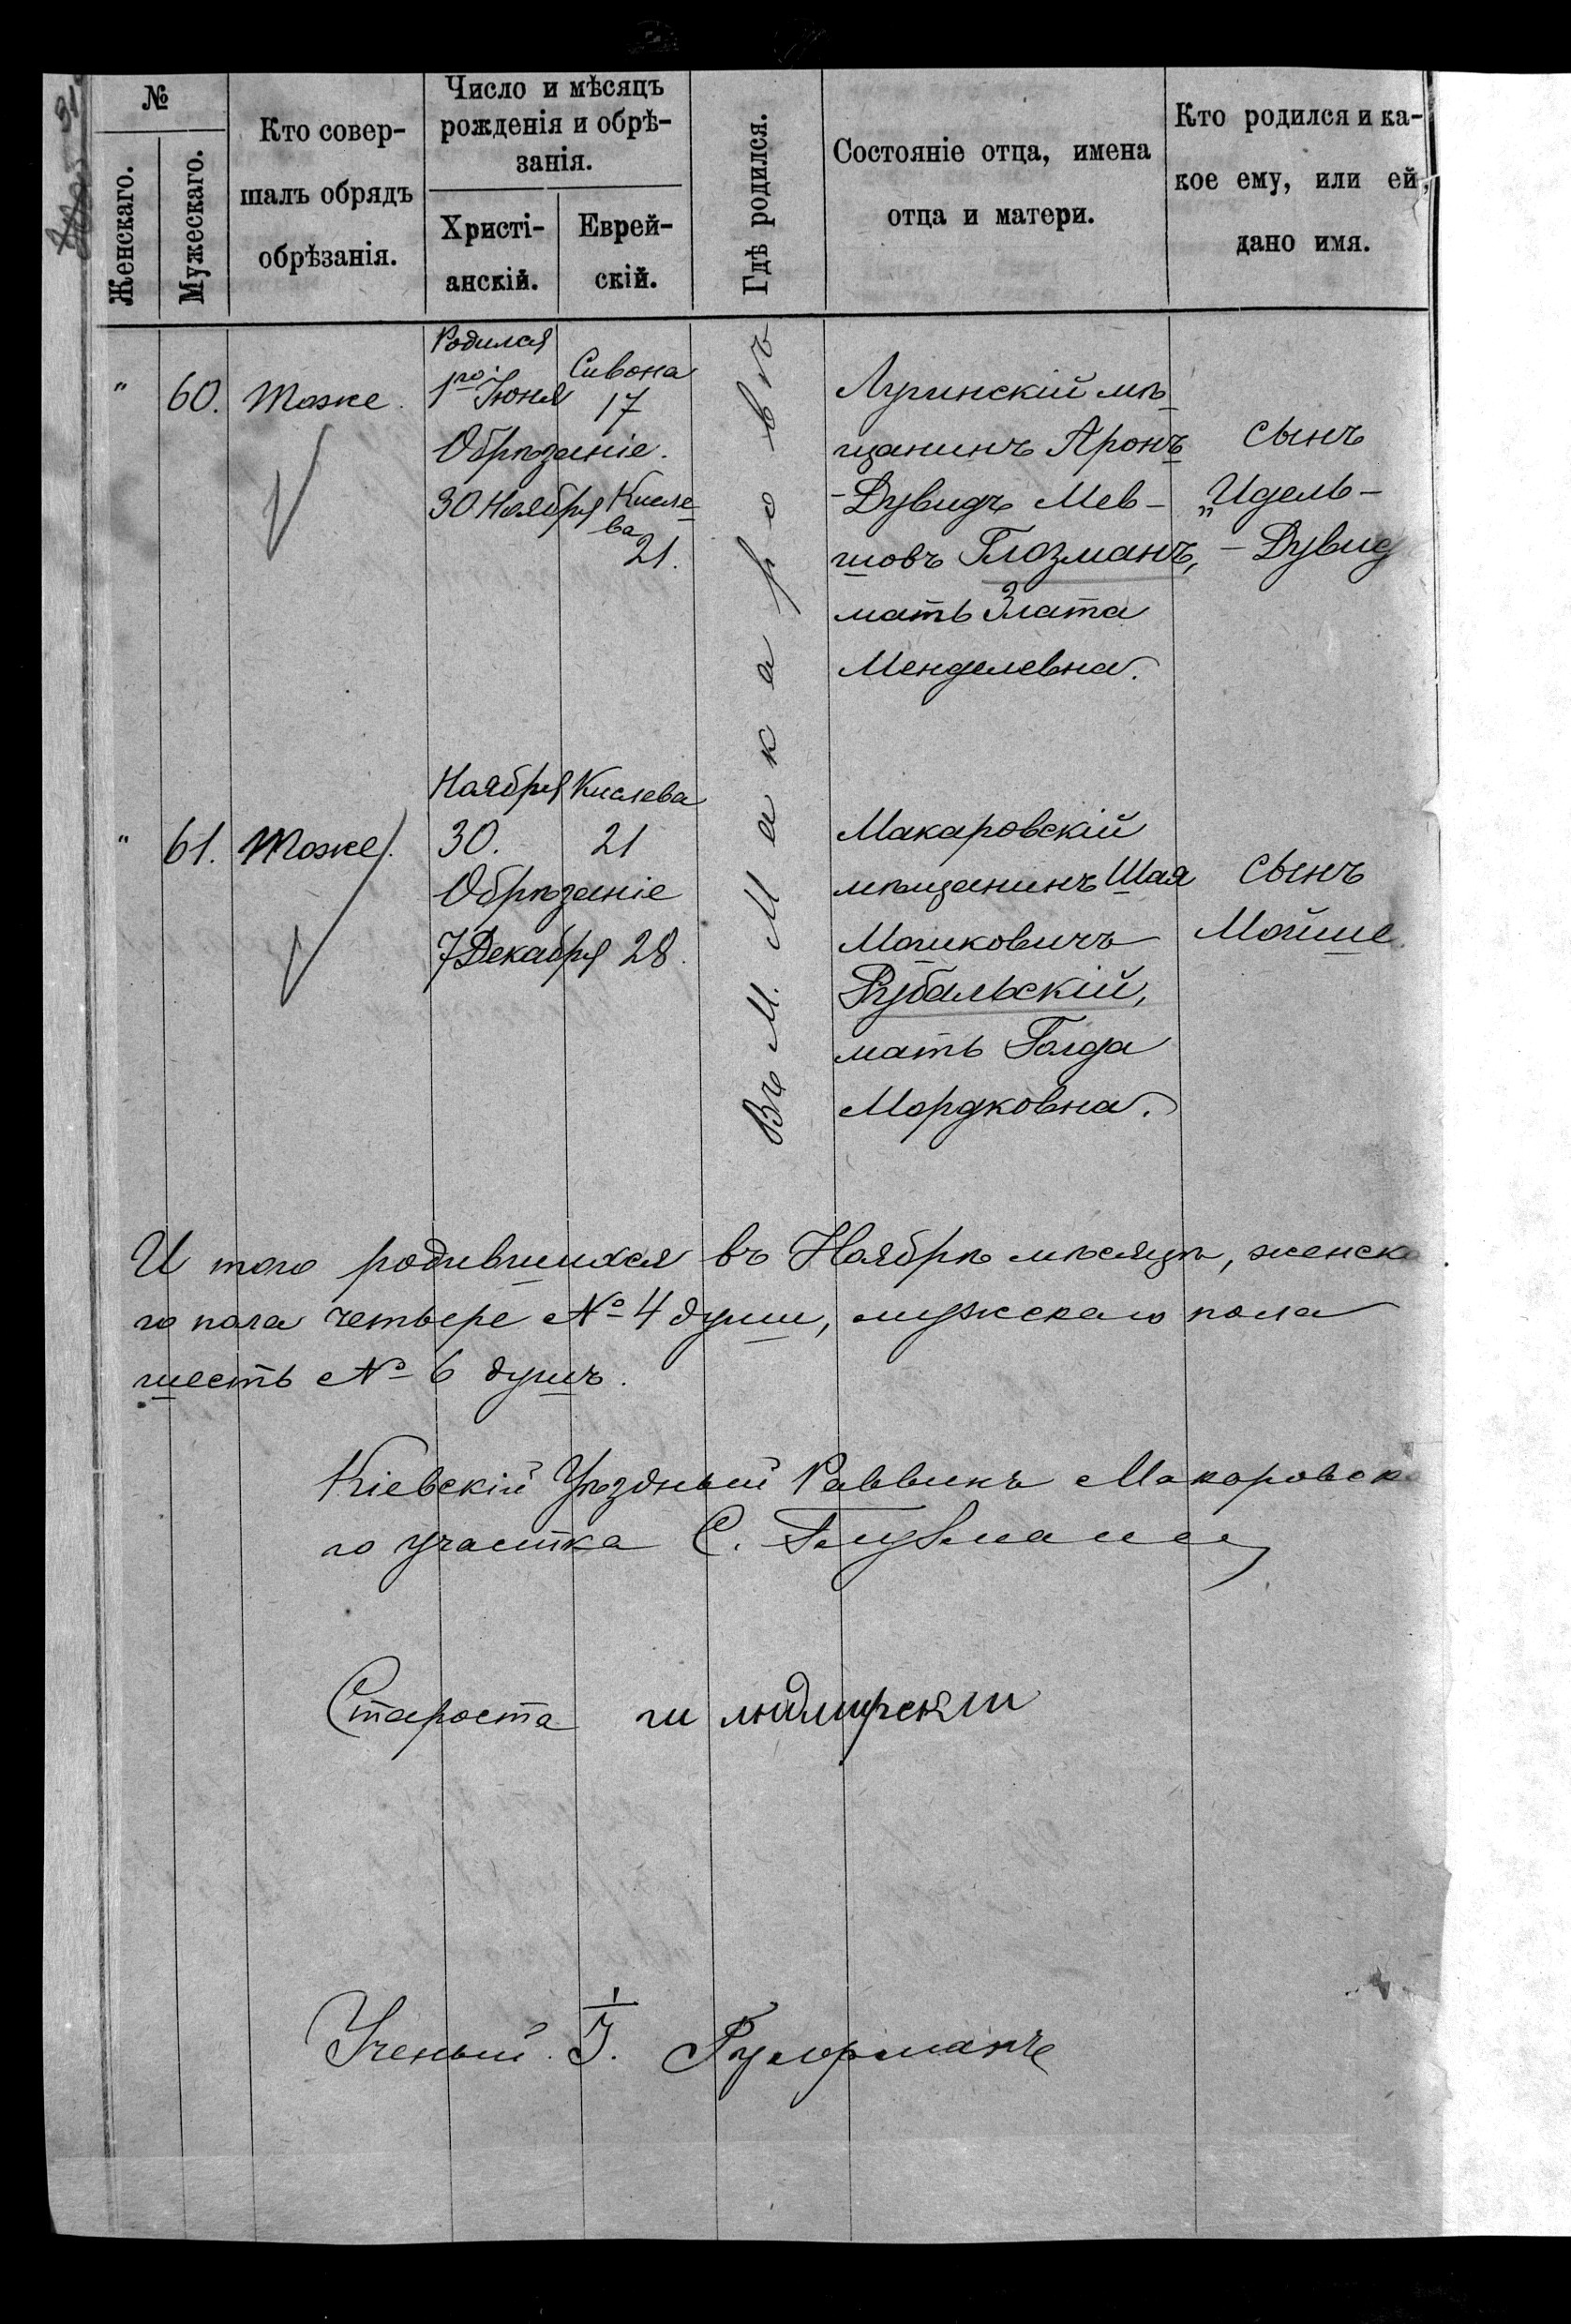 №
Женскаго.
Мужескаго.
Кто совер-
шалъ обрядъ
обрѣзанія.
Число и мѣсяцъ
рожденія и обрѣ-
занія.
Христі-
анскій.
Еврей-
скій.
Гдѣ родился.
Состояніе отца, имена
отца и матери.
Кто родился и ка-
кое ему, или ей,
дано имя.
"
60.
Тоже.
Родился
1го Іюня
Обрѣзаніе.
30 Ноября
Сивона
17
Кисле-
ва
21.
Въ М. Макаровѣ
Лугинскій мѣ-
щанинъ Аронъ
-Дувидъ Мев-
шовъ Глозманъ,
мать Злата
Менделевна.
сынъ
„Идель-
-Дувид
"
61.
Тоже.
Ноября Кислева
30. 21
Обрѣзаніе
7 Декабря 28.
Макаровскій
мѣщанинъ Шая
Мошковичъ
Рубальскій,
мать Голда
Мордковна.
сынъ
Мойше.
И того родившихся въ Ноябрѣ мѣсяцѣ, женска
го пола четвере № 4 души, мужескаго пола
шесть № 6 душъ.
Кіевскій Уѣздный Раввинъ Макаровска
го участка С.
Староста
Ученый. І.